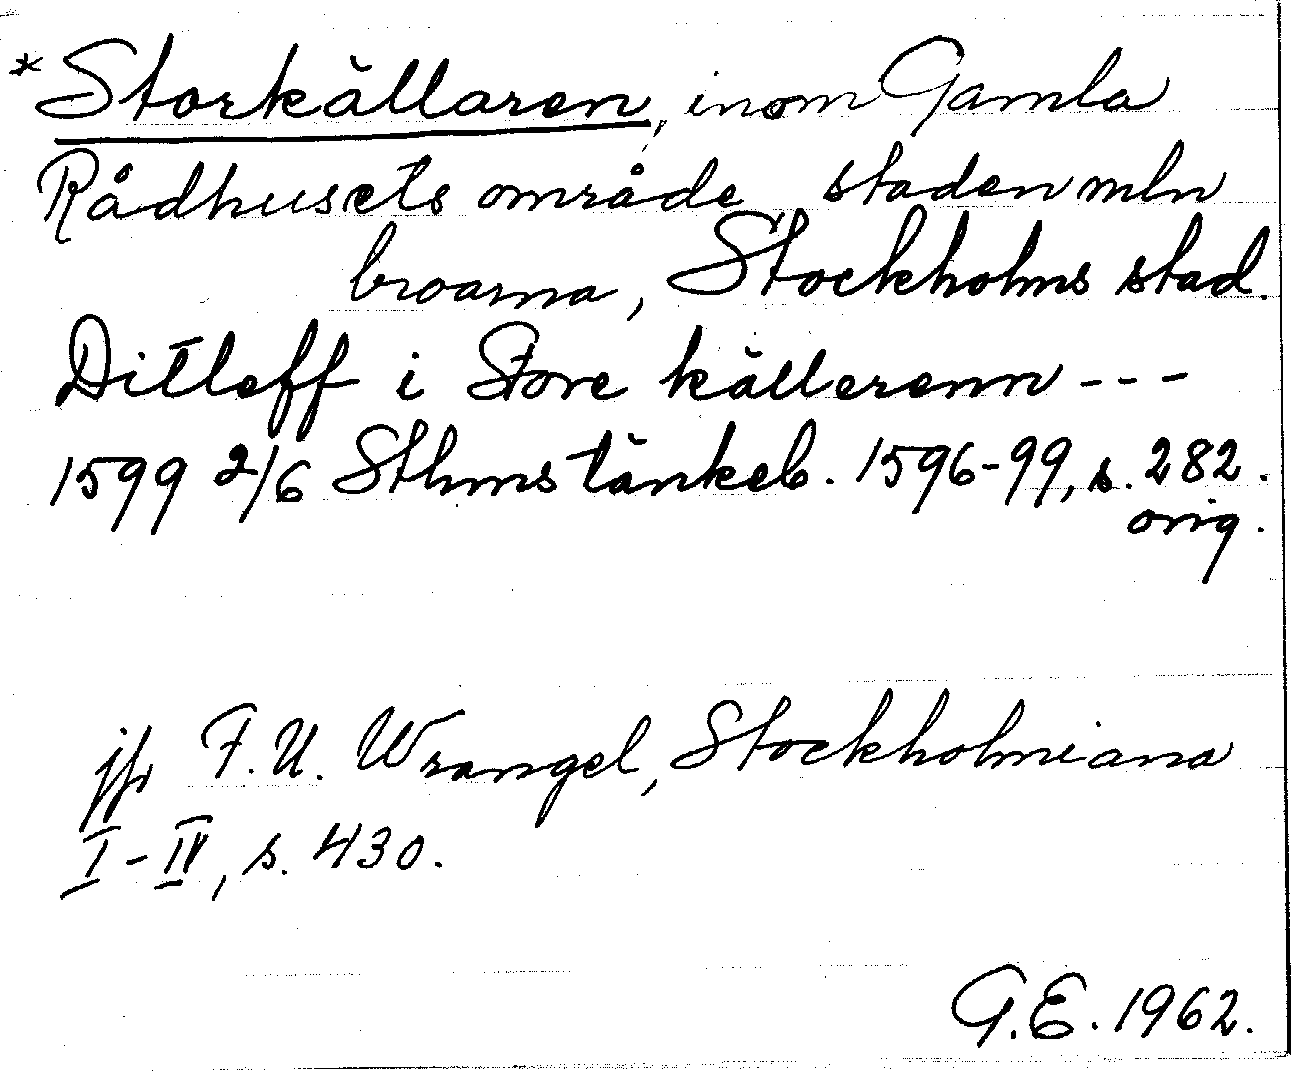 *Storkällaren, inom Gamla
Rådhusets område, staden mln
broarna, Stockholms stad.
Ditleff i Store källerenn ---
1599 2/6 Sthms tänkeb. 1596-99, s. 282.
orig.
jfr F.U. Wrangel, Stockholmiana
I-IV, s. 430.
G.E. 1962.